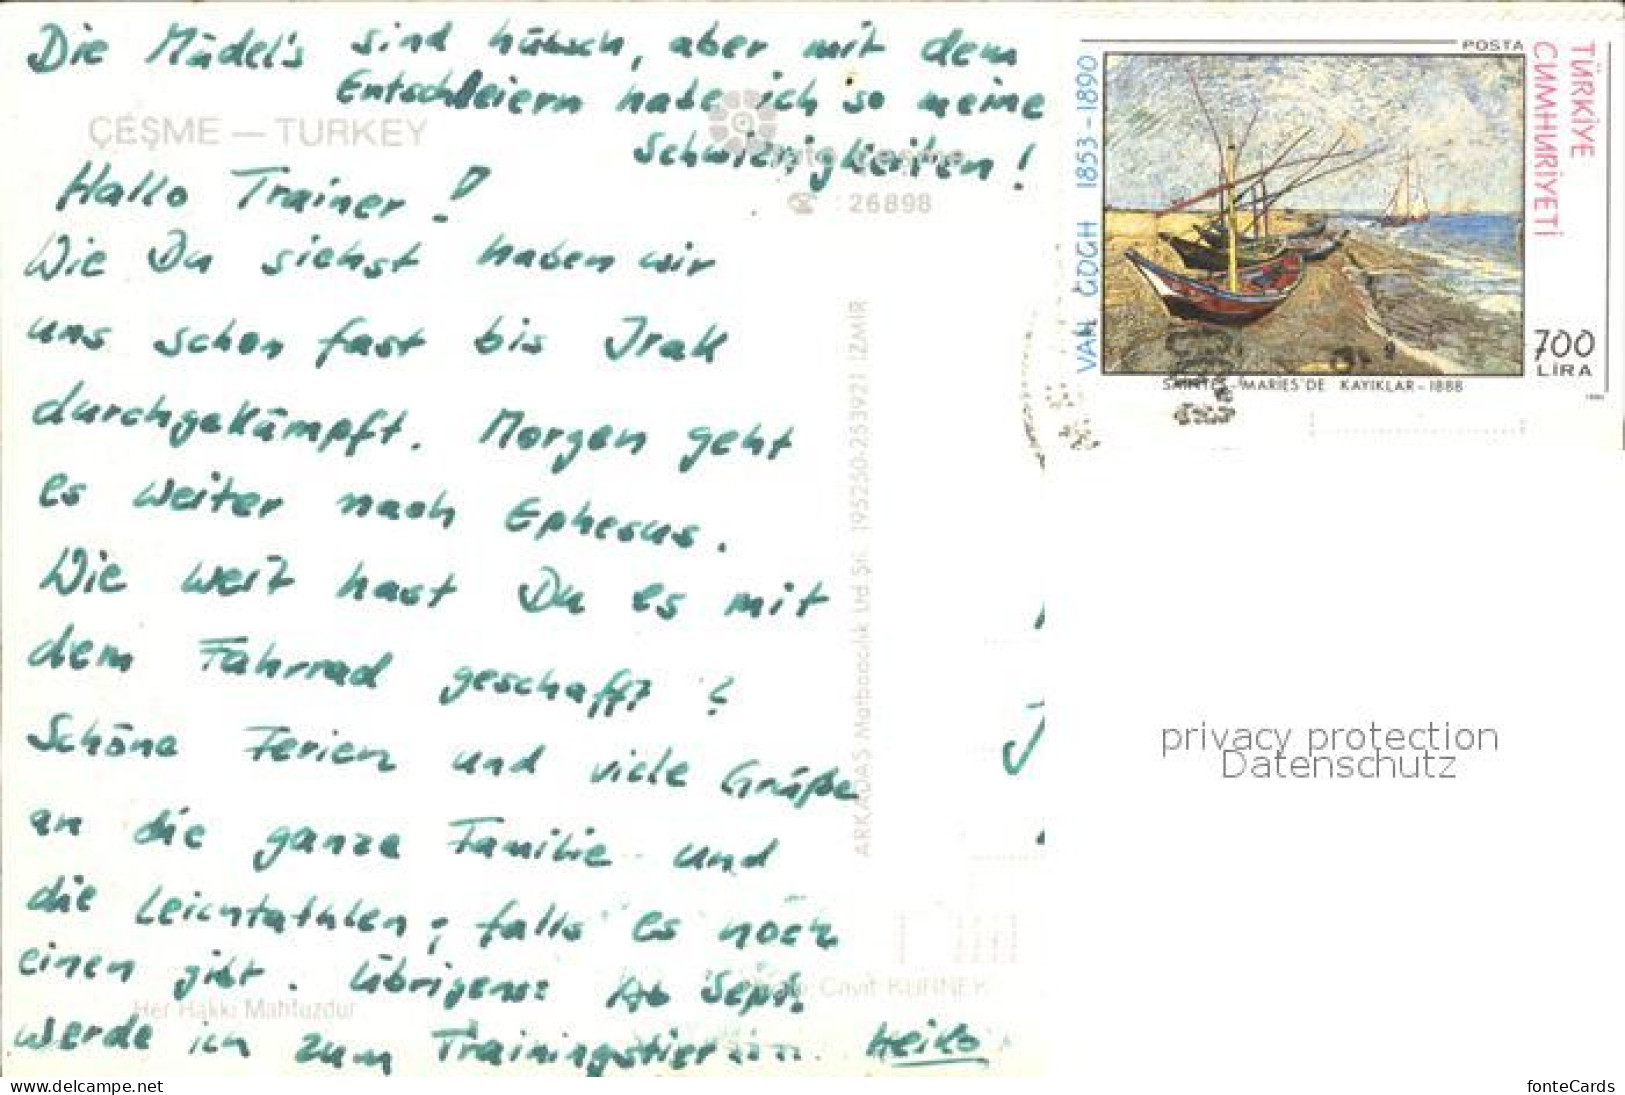 Die Mädel's sind hübsch, aber mit dem
Entschleiern habe ich so meine
Schwierigkeiten!
ÇEŞME — TURKEY
26898
Hallo Trainer!
Wie Du siehst haben wir
uns schon fast bis Irak
durchgekämpft. Morgen geht
es weiter nach Ephesus.
Wie weit hast Du es mit
dem Fahrrad geschafft?
Schöne Ferien und viele Grüße
an die ganze Familie und
die Leichtathlen, falls es noch
einen gibt. Übrigens: Ab Sept.
werde ich zum Trainingstier.... Heiko
Her Hakkı Mahfuzdur
Cavit KÜRNEK
ARKADAŞ Matbaacılık Ltd Şti. 195250-253921 İZMİR
POSTA
TÜRKİYE
CUMHURİYETİ
VAN GOGH 1853-1890
700
LİRA
SAINTES-MARIES'DE KAYIKLAR-1888
privacy protection
Datenschutz
www.delcampe.net
fonteCards